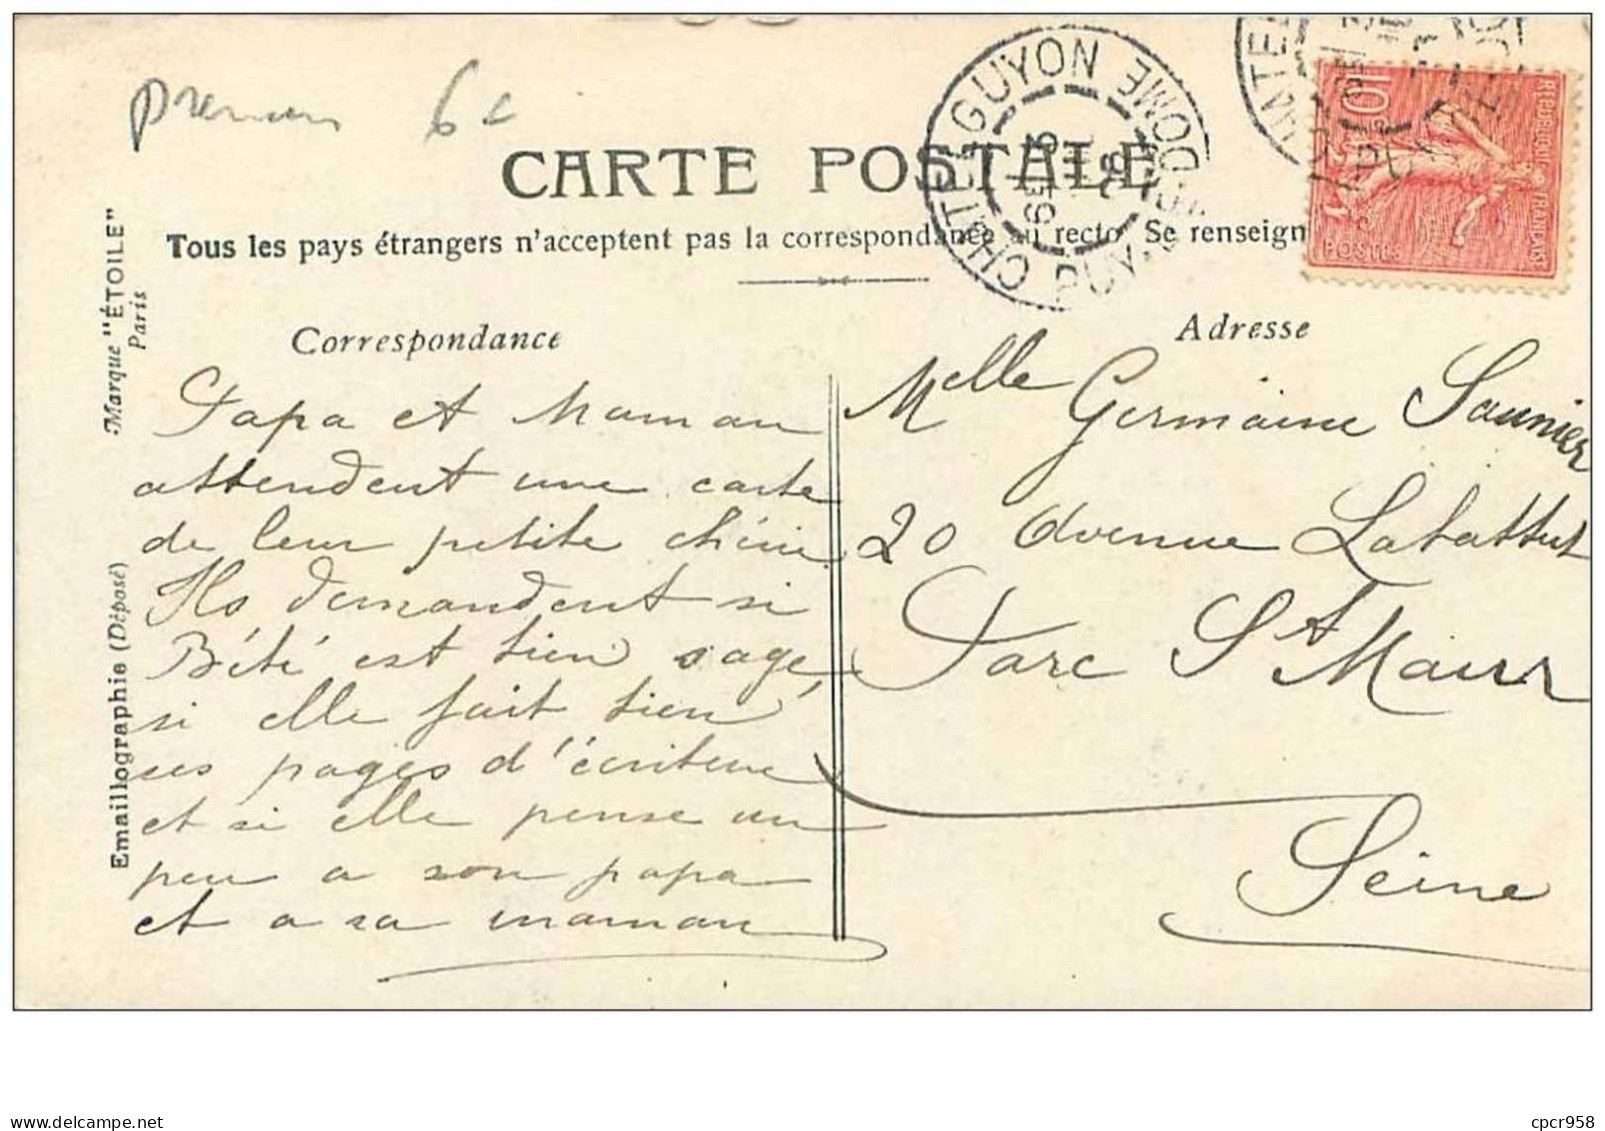 prenom 6c
CARTE POSTALE
Tous les pays étrangers n'acceptent pas la correspondance au recto Se renseign
CHATEL-GUYON
PUY-DE-DOME
REPUBLIQUE FRANÇAISE
POSTES
10
Marque "ÉTOILE"
Paris
Emaillographie (Déposé)
Correspondance
Papa et Maman
attendent une carte
de leur petite chérie
Ils demandent si
Bébé est bien sage,
si elle fait bien
ses pages d'écriture
et si elle pense un
peu a son papa
et a sa maman
Adresse
Melle Germaine Saunier
20 Avenue Labattut
Parc St Maur
Seine
www.delcampe.net
cpcr958